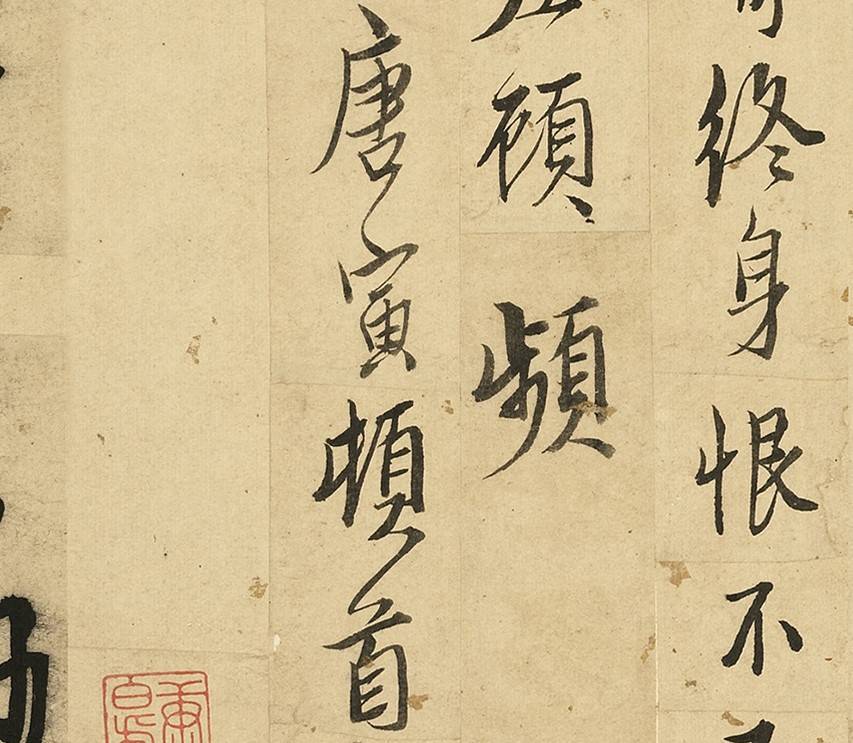 終身恨不
顧頻
唐寅頓首